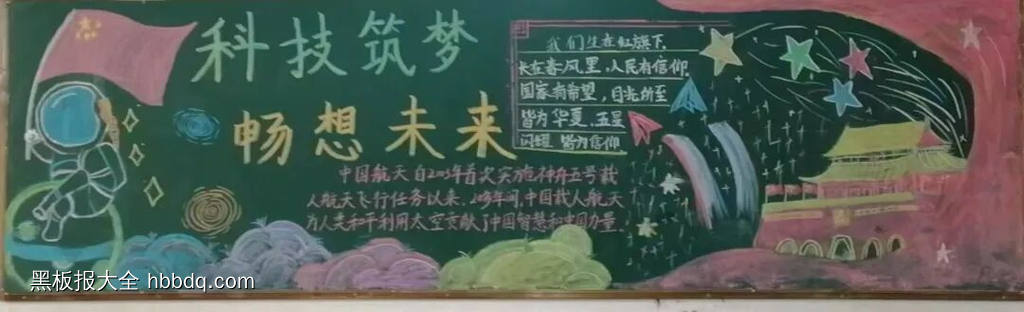 科技筑梦
畅想未来
我们生在红旗下,
长在春风里,人民有信仰
国家有希望,目光所至
皆为华夏,五星
闪耀 皆为信仰
中国航天自2003年首次实施神舟五号载
人航天飞行任务以来,20多年间,中国载人航天
为人类和平利用太空贡献了中国智慧和中国力量.
黑板报大全 hbbdq.com